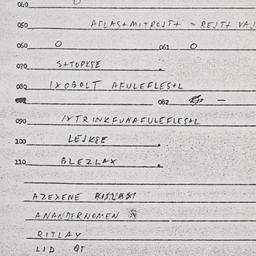 040
050 AFLAS+MITROST+ = REJT+ VAJ
060 O 061 O
070 S+TOPKSE
080 IXOBOLT AFULEFLES+L
082 —
090 IXTRINKFUKAFULEFLES+L
100 LEJKEE
110 BLEZLAX
AZEXENE
ANANDERNOMEN
RITLAY
LID QT